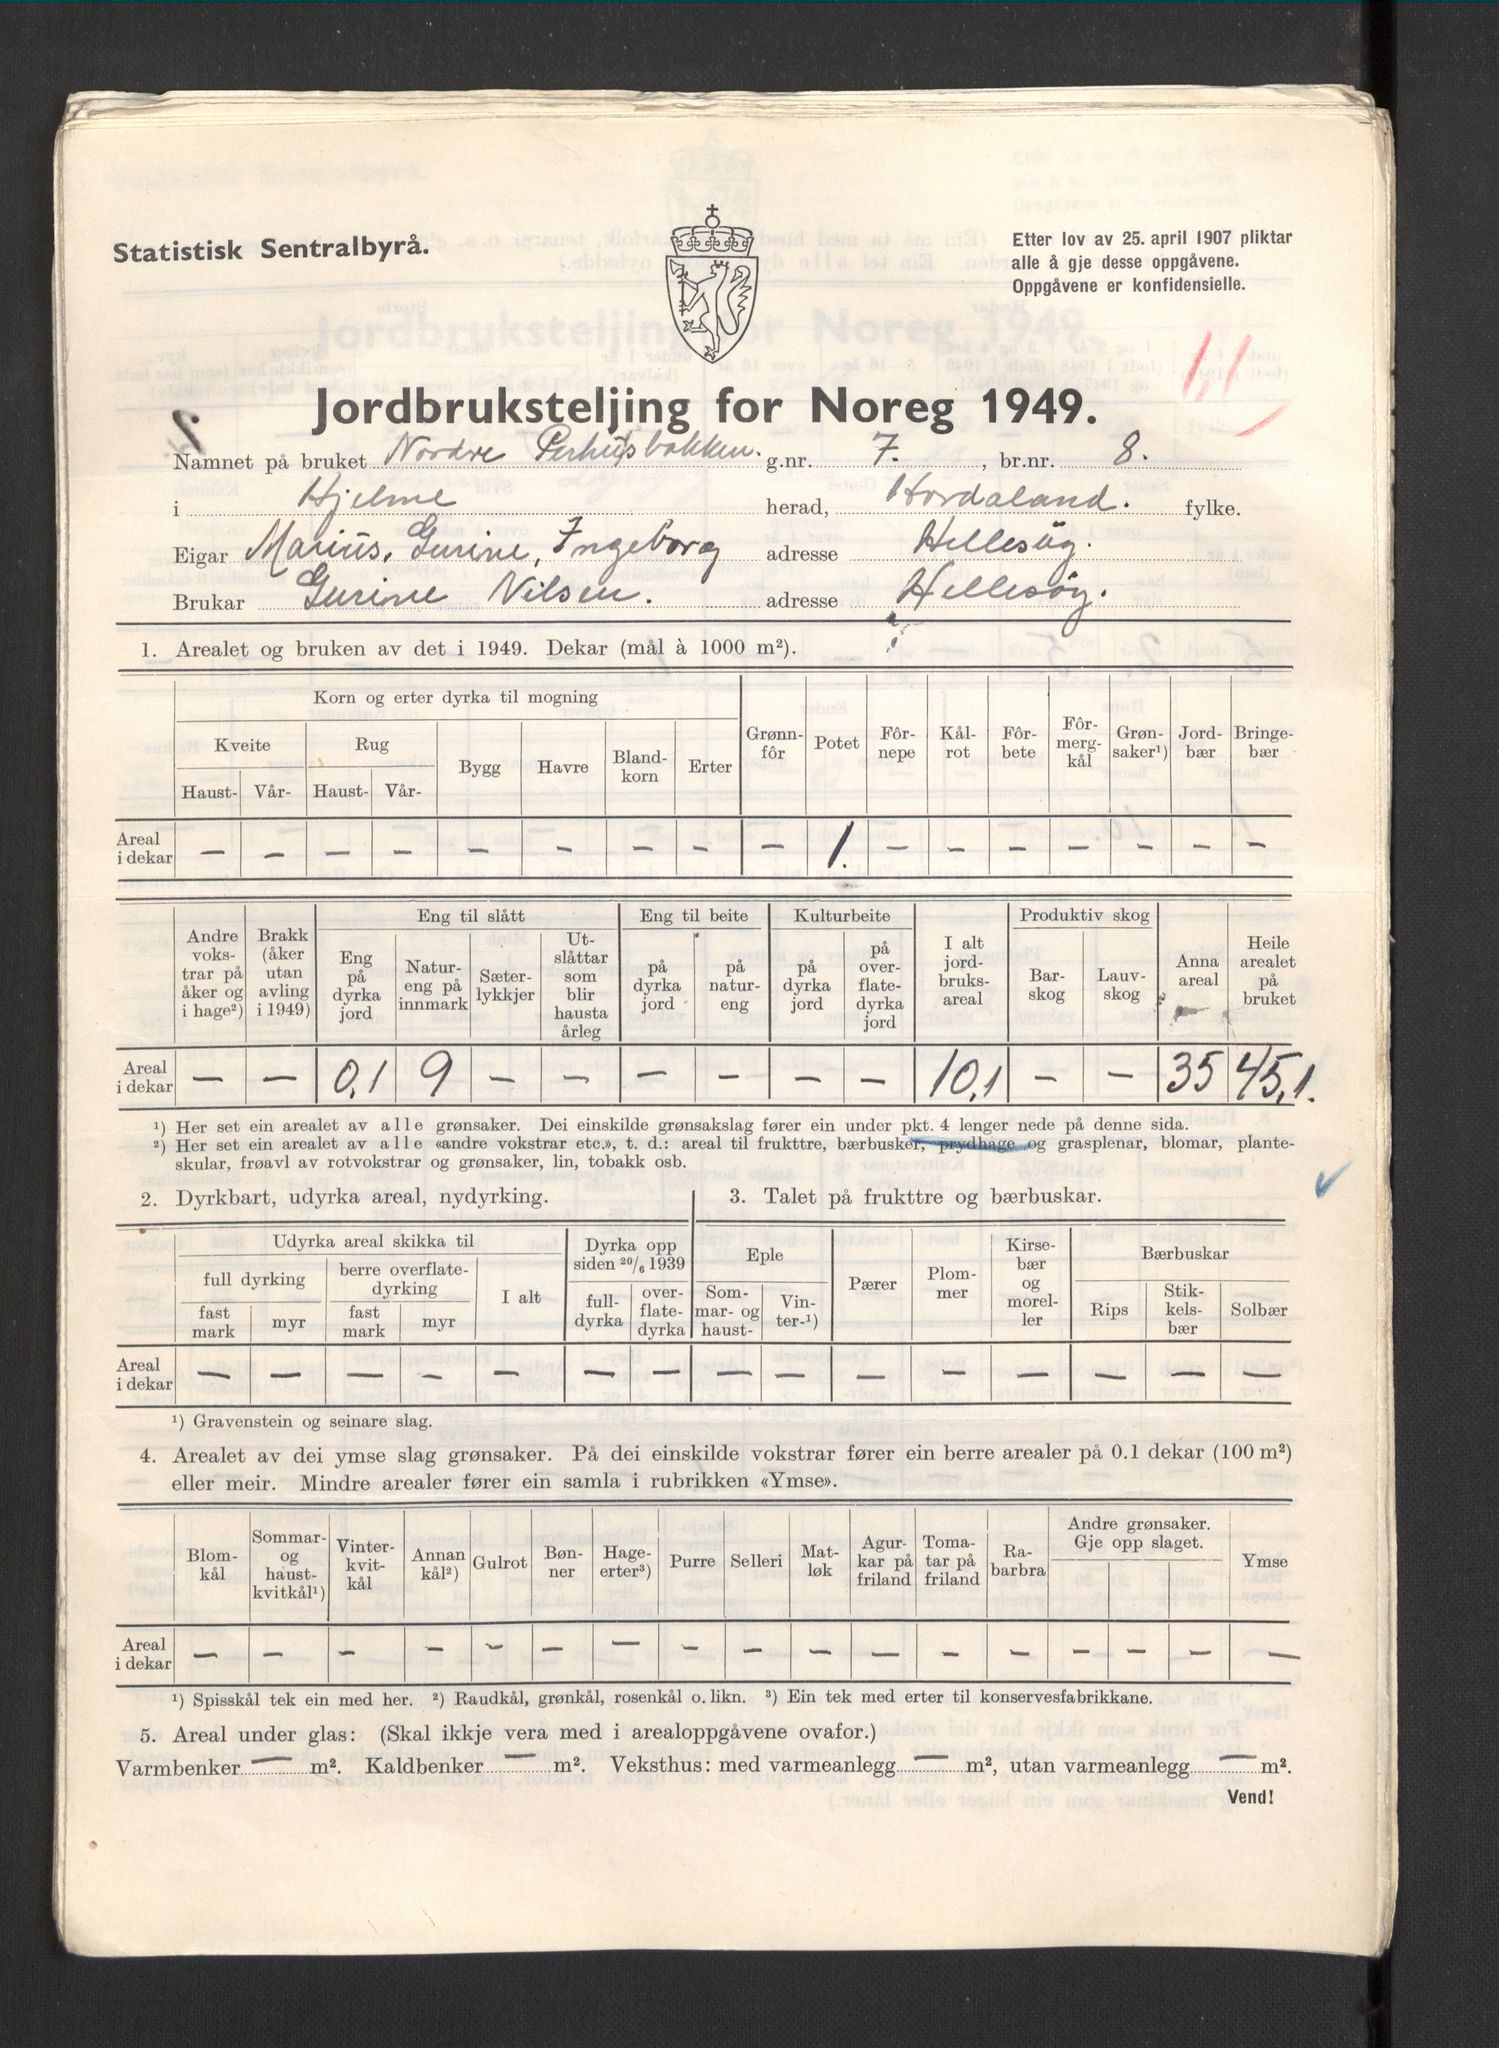 Statistisk Sentralbyrå.
Etter lov av 25. april 1907 pliktar
alle å gje desse oppgåvene.
Oppgåvene er konfidensielle.
1,1
Jordbruksteljing for Noreg 1949.
Namnet på bruket Nordre Perhusbakken. g.nr. 7. , br.nr. 8.
i Hjelme herad, Hordaland. fylke.
Eigar Marius, Gurine, Ingeborg adresse Hellesøy.
Brukar Gurine Nilsen. adresse Hellesøy.
1. Arealet og bruken av det i 1949. Dekar (mål à 1000 m²).
Korn og erter dyrka til mogning
Kveite Rug Bygg Havre Bland-korn Erter Grønn-fôr Potet Fôr-nepe Kål-rot Fôr-bete Fôr-merg-kål Grøn-saker¹) Jord-bær Bringe-bær
Haust- Vår- Haust- Vår-
Areal i dekar — — — — — — — — — 1. — — — — — — —
Eng til slått Eng til beite Kulturbeite Produktiv skog
Andre voks-trar på åker og i hage²) Brakk (åker utan avling i 1949) Eng på dyrka jord Natur-eng på innmark Sæter-lykkjer Ut-slåttar som blir hausta årleg på dyrka jord på natur-eng på dyrka jord på over-flate-dyrka jord I alt jord-bruks-areal Bar-skog Lauv-skog Anna areal Heile arealet på bruket
Areal i dekar — — 0,1 9 — — — — — — 10,1 — — 35 45,1.
¹) Her set ein arealet av alle grønsaker. Dei einskilde grønsakslag fører ein under pkt. 4 lenger nede på denne sida.
²) Her set ein arealet av alle «andre vokstrar etc.», t. d.: areal til frukttre, bærbusker, prydhage og grasplenar, blomar, plante-
skular, frøavl av rotvokstrar og grønsaker, lin, tobakk osb.
2. Dyrkbart, udyrka areal, nydyrking.
3. Talet på frukttre og bærbuskar.
Udyrka areal skikka til Dyrka opp siden 20/6 1939 Eple Pærer Plom-mer Kirse-bær og morel-ler Bærbuskar
full dyrking berre overflate-dyrking I alt full-dyrka over-flate-dyrka Som-mar- og haust- Vin-ter-¹) Rips Stik-kels-bær Solbær
fast mark myr fast mark myr
Areal i dekar — — — — — — — — — — — — — — —
¹) Gravenstein og seinare slag.
4. Arealet av dei ymse slag grønsaker. På dei einskilde vokstrar fører ein berre arealer på 0.1 dekar (100 m²)
eller meir. Mindre arealer fører ein samla i rubrikken «Ymse».
Blom-kål Sommar- og haust-kvitkål¹) Vinter-kvit-kål Annan kål²) Gulrot Bøn-ner Hage-erter³) Purre Selleri Mat-løk Agur-kar på friland Toma-tar på friland Ra-barbra Andre grønsaker. Gje opp slaget. Ymse
Areal i dekar — — — — — — — — — — — — — — — — —
¹) Spisskål tek ein med her. ²) Raudkål, grønkål, rosenkål o. likn. ³) Ein tek med erter til konservesfabrikkane.
5. Areal under glas: (Skal ikkje vera med i arealoppgåvene ovafor.)
Varmbenker — m². Kaldbenker — m². Veksthus: med varmeanlegg — m², utan varmeanlegg — m².
Vend!